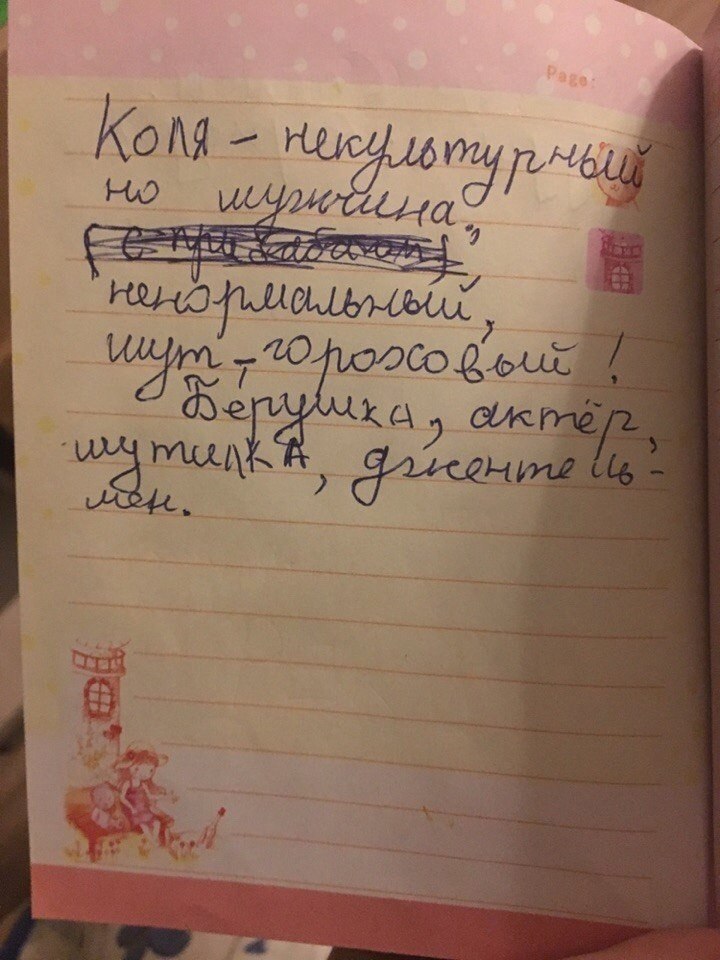 Page:
Коля – некультурный
но мужчина",
ненормальный,
шут-гороховый!
Берушка, актёр,
шутилка, джентель-
мен.